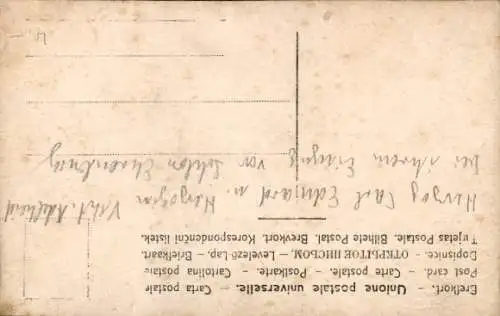 Brefkort. - Unione postale universelle. — Carta postale
Post card. - Carte postale. - Postkarte. - Cartolina postale
Dopisnice. - ОТКРЫТОЕ ПИСЬМО. — Levelező-Lap. - Briefkaart.
Tarjetas Postale. Bilhete Postal. Brevkort. Korespondenční lístek.
Herzog Carl Eduard u. Herzogin Vikt. Adelheid
bei ihrem Einzug vor Schloss Ehrenburg